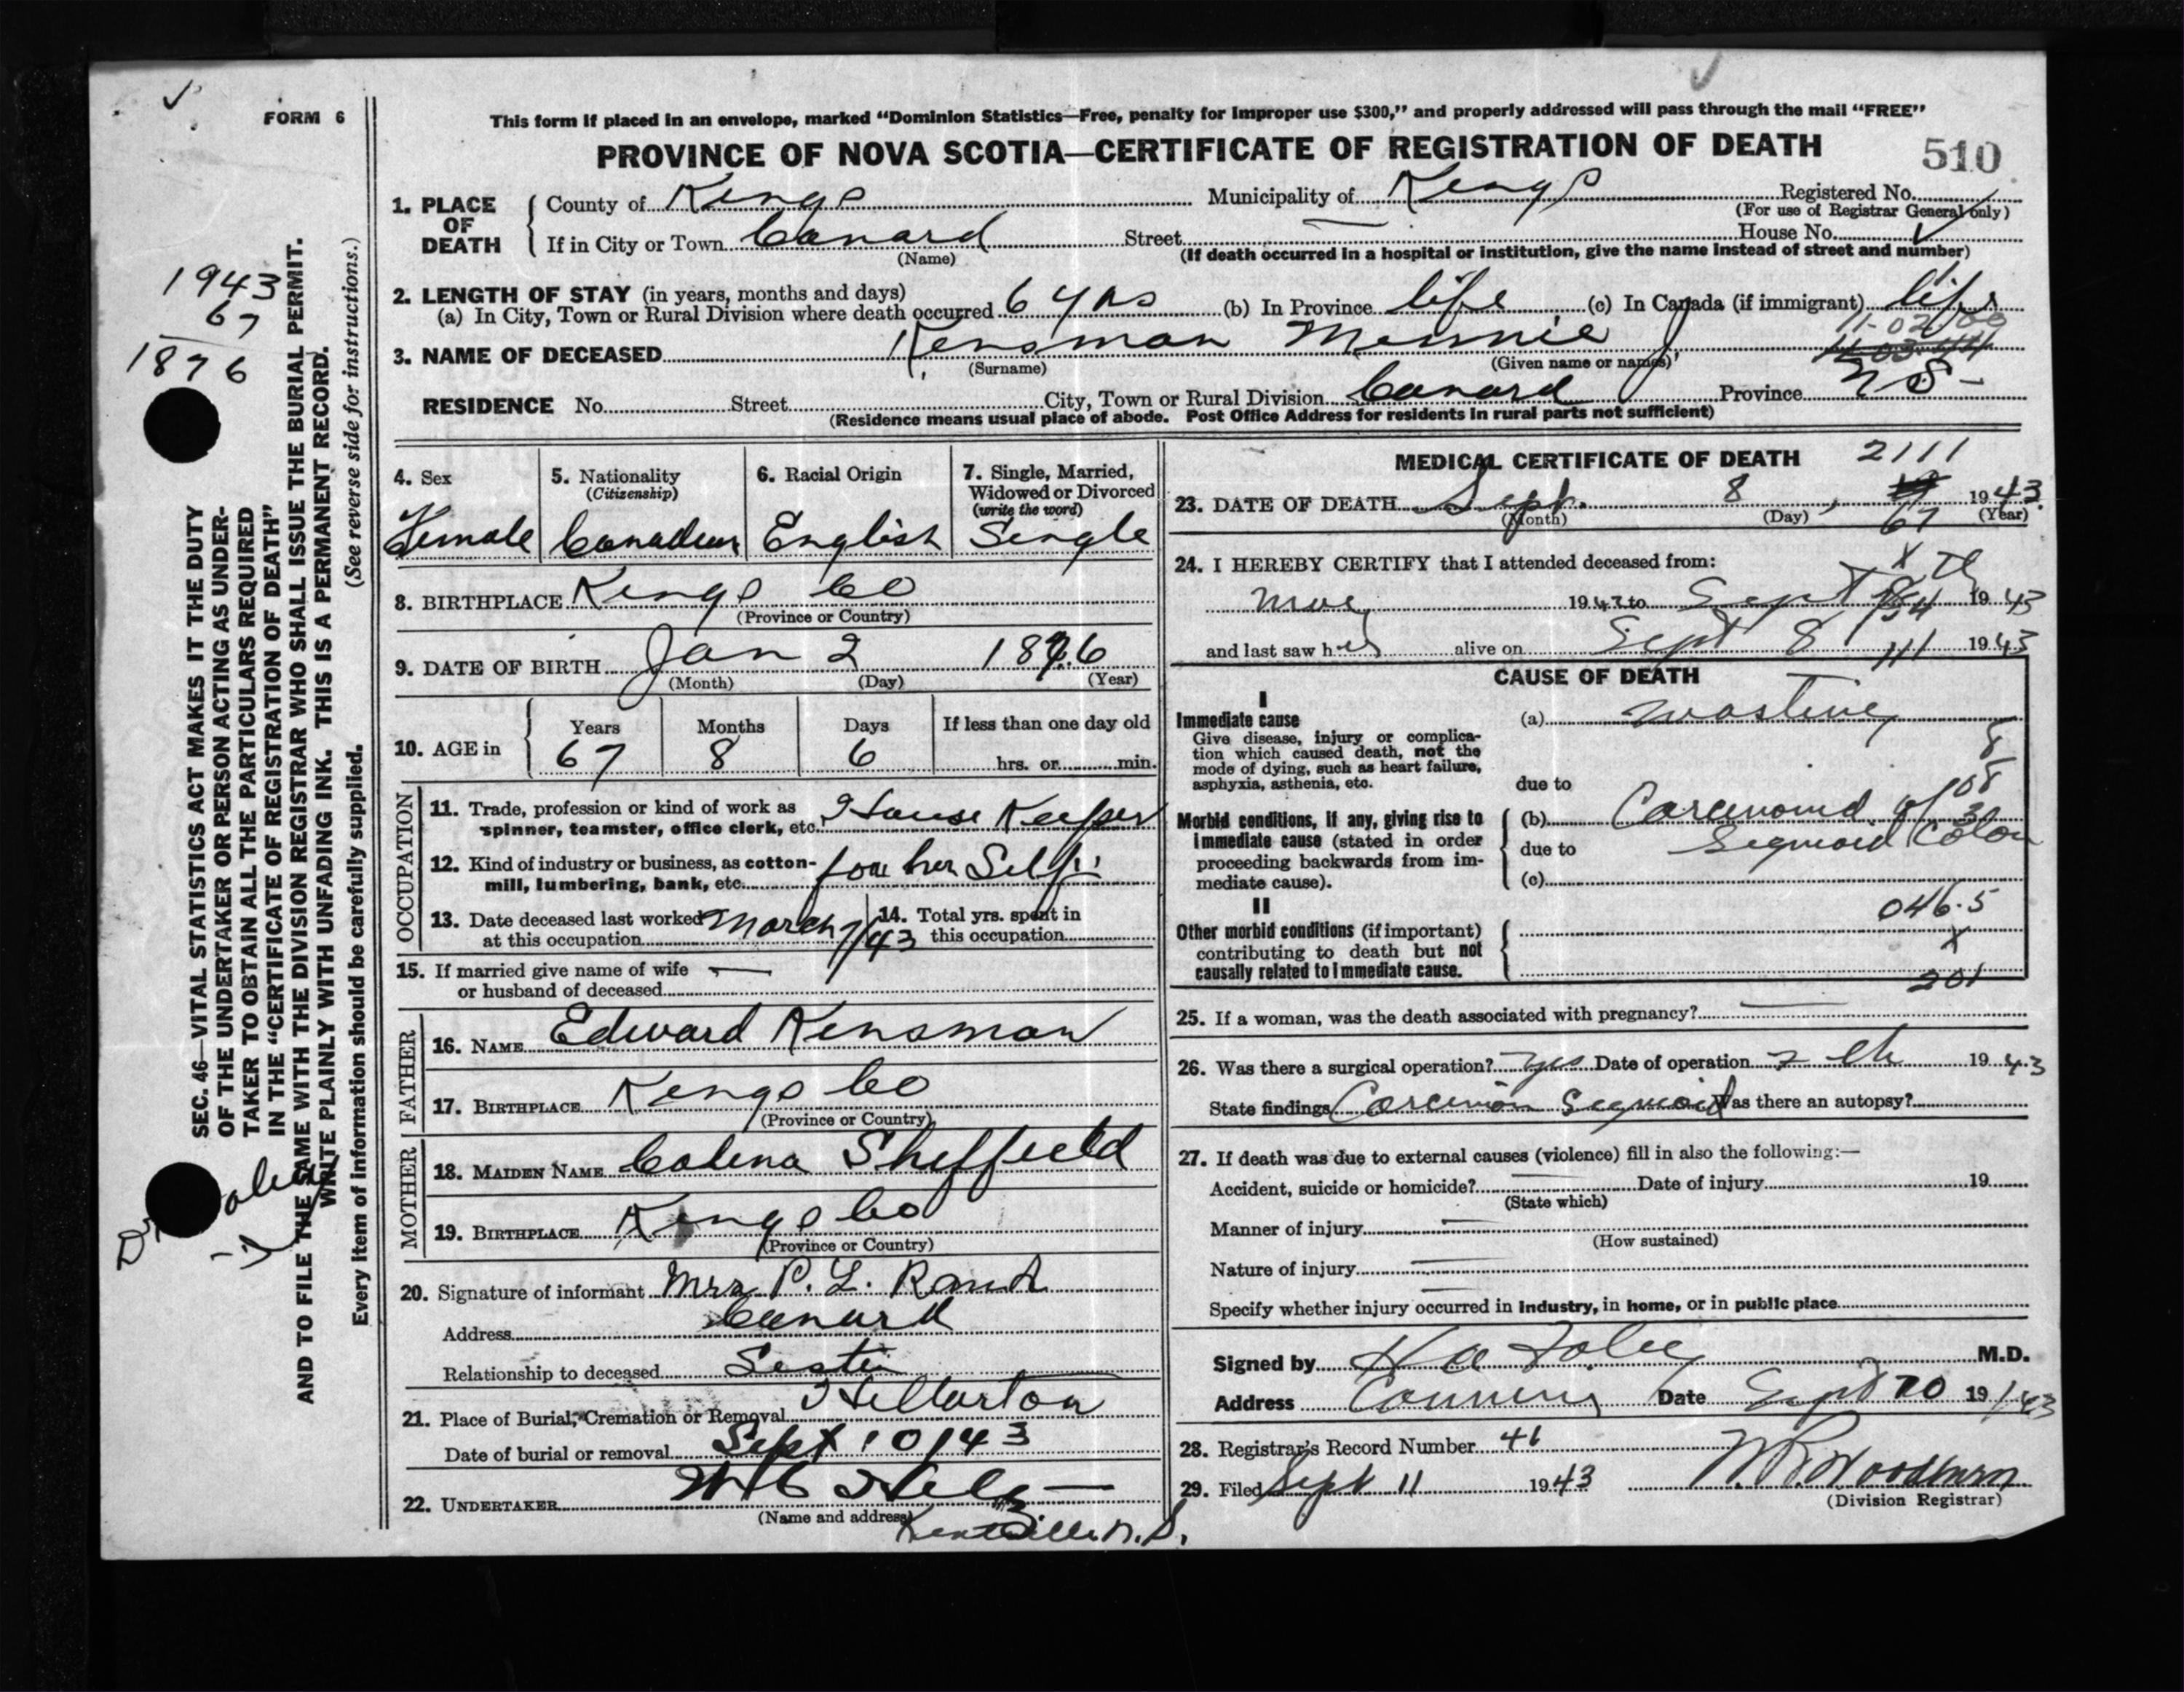 FORM 6
This form if placed in an envelope, marked “Dominion Statistics—Free, penalty for improper use $300,” and properly addressed will pass through the mail “FREE”
PROVINCE OF NOVA SCOTIA—CERTIFICATE OF REGISTRATION OF DEATH
510
1. PLACE OF DEATH
County of Kings Municipality of Kings Registered No.
(For use of Registrar General only)
If in City or Town Canard Street House No.
(Name) (If death occurred in a hospital or institution, give the name instead of street and number)
2. LENGTH OF STAY (in years, months and days)
(a) In City, Town or Rural Division where death occurred 6 yrs (b) In Province life (c) In Canada (if immigrant) life
3. NAME OF DECEASED Kinsman Minnie J
(Surname) (Given name or names)
RESIDENCE No. Street City, Town or Rural Division Canard Province N S -
(Residence means usual place of abode. Post Office Address for residents in rural parts not sufficient)
4. Sex
Female
5. Nationality
(Citizenship)
Canadian
6. Racial Origin
English
7. Single, Married,
Widowed or Divorced
(write the word)
Single
8. BIRTHPLACE Kings Co
(Province or Country)
9. DATE OF BIRTH Jan 2 1876
(Month) (Day) (Year)
10. AGE in
Years Months Days If less than one day old
67 8 6 hrs. or min.
OCCUPATION
11. Trade, profession or kind of work as
spinner, teamster, office clerk, etc. House Keeper
12. Kind of industry or business, as cotton-
mill, lumbering, bank, etc. for her Self
13. Date deceased last worked
at this occupation March /43
14. Total yrs. spent in
this occupation
15. If married give name of wife —
or husband of deceased
FATHER
16. NAME Edward Kinsman
17. BIRTHPLACE Kings Co
(Province or Country)
MOTHER
18. MAIDEN NAME Calena Sheffield
19. BIRTHPLACE Kings Co
(Province or Country)
20. Signature of informant Mrs P. L. Rand
Address Canard
Relationship to deceased Sister
21. Place of Burial, Cremation or Removal Hillarton
Date of burial or removal Sept 10/43
22. UNDERTAKER
(Name and address) Kentville N. S.
MEDICAL CERTIFICATE OF DEATH 2111
23. DATE OF DEATH Sept. 8, 1943
(Month) (Day) (Year)
67
24. I HEREBY CERTIFY that I attended deceased from:
1943 to Sept 1943
and last saw her alive on Sept 8 1943
CAUSE OF DEATH
I
Immediate cause
Give disease, injury or complica-
tion which caused death, not the
mode of dying, such as heart failure,
asphyxia, asthenia, etc.
(a) wasting
due to
Morbid conditions, if any, giving rise to
immediate cause (stated in order
proceeding backwards from im-
mediate cause).
(b) Carcinoma of
due to Sigmoid Colon
(c)
II
Other morbid conditions (if important)
contributing to death but not
causally related to immediate cause.
046.5
X
201
25. If a woman, was the death associated with pregnancy? —
26. Was there a surgical operation? yes Date of operation 1943
State findings Sigmoid Was there an autopsy?
27. If death was due to external causes (violence) fill in also the following:—
Accident, suicide or homicide? Date of injury 19
(State which)
Manner of injury
(How sustained)
Nature of injury
Specify whether injury occurred in industry, in home, or in public place
Signed by M.D.
Address Canning Date Sept 10 1943
28. Registrar's Record Number 46
29. Filed Sept 11 1943 Woodburn
(Division Registrar)
1943
67
1876
SEC. 46—VITAL STATISTICS ACT MAKES IT THE DUTY
OF THE UNDERTAKER OR PERSON ACTING AS UNDER-
TAKER TO OBTAIN ALL THE PARTICULARS REQUIRED
IN THE “CERTIFICATE OF REGISTRATION OF DEATH”
AND TO FILE THE SAME WITH THE DIVISION REGISTRAR WHO SHALL ISSUE THE BURIAL PERMIT.
WRITE PLAINLY WITH UNFADING INK. THIS IS A PERMANENT RECORD.
Every item of information should be carefully supplied. (See reverse side for instructions.)